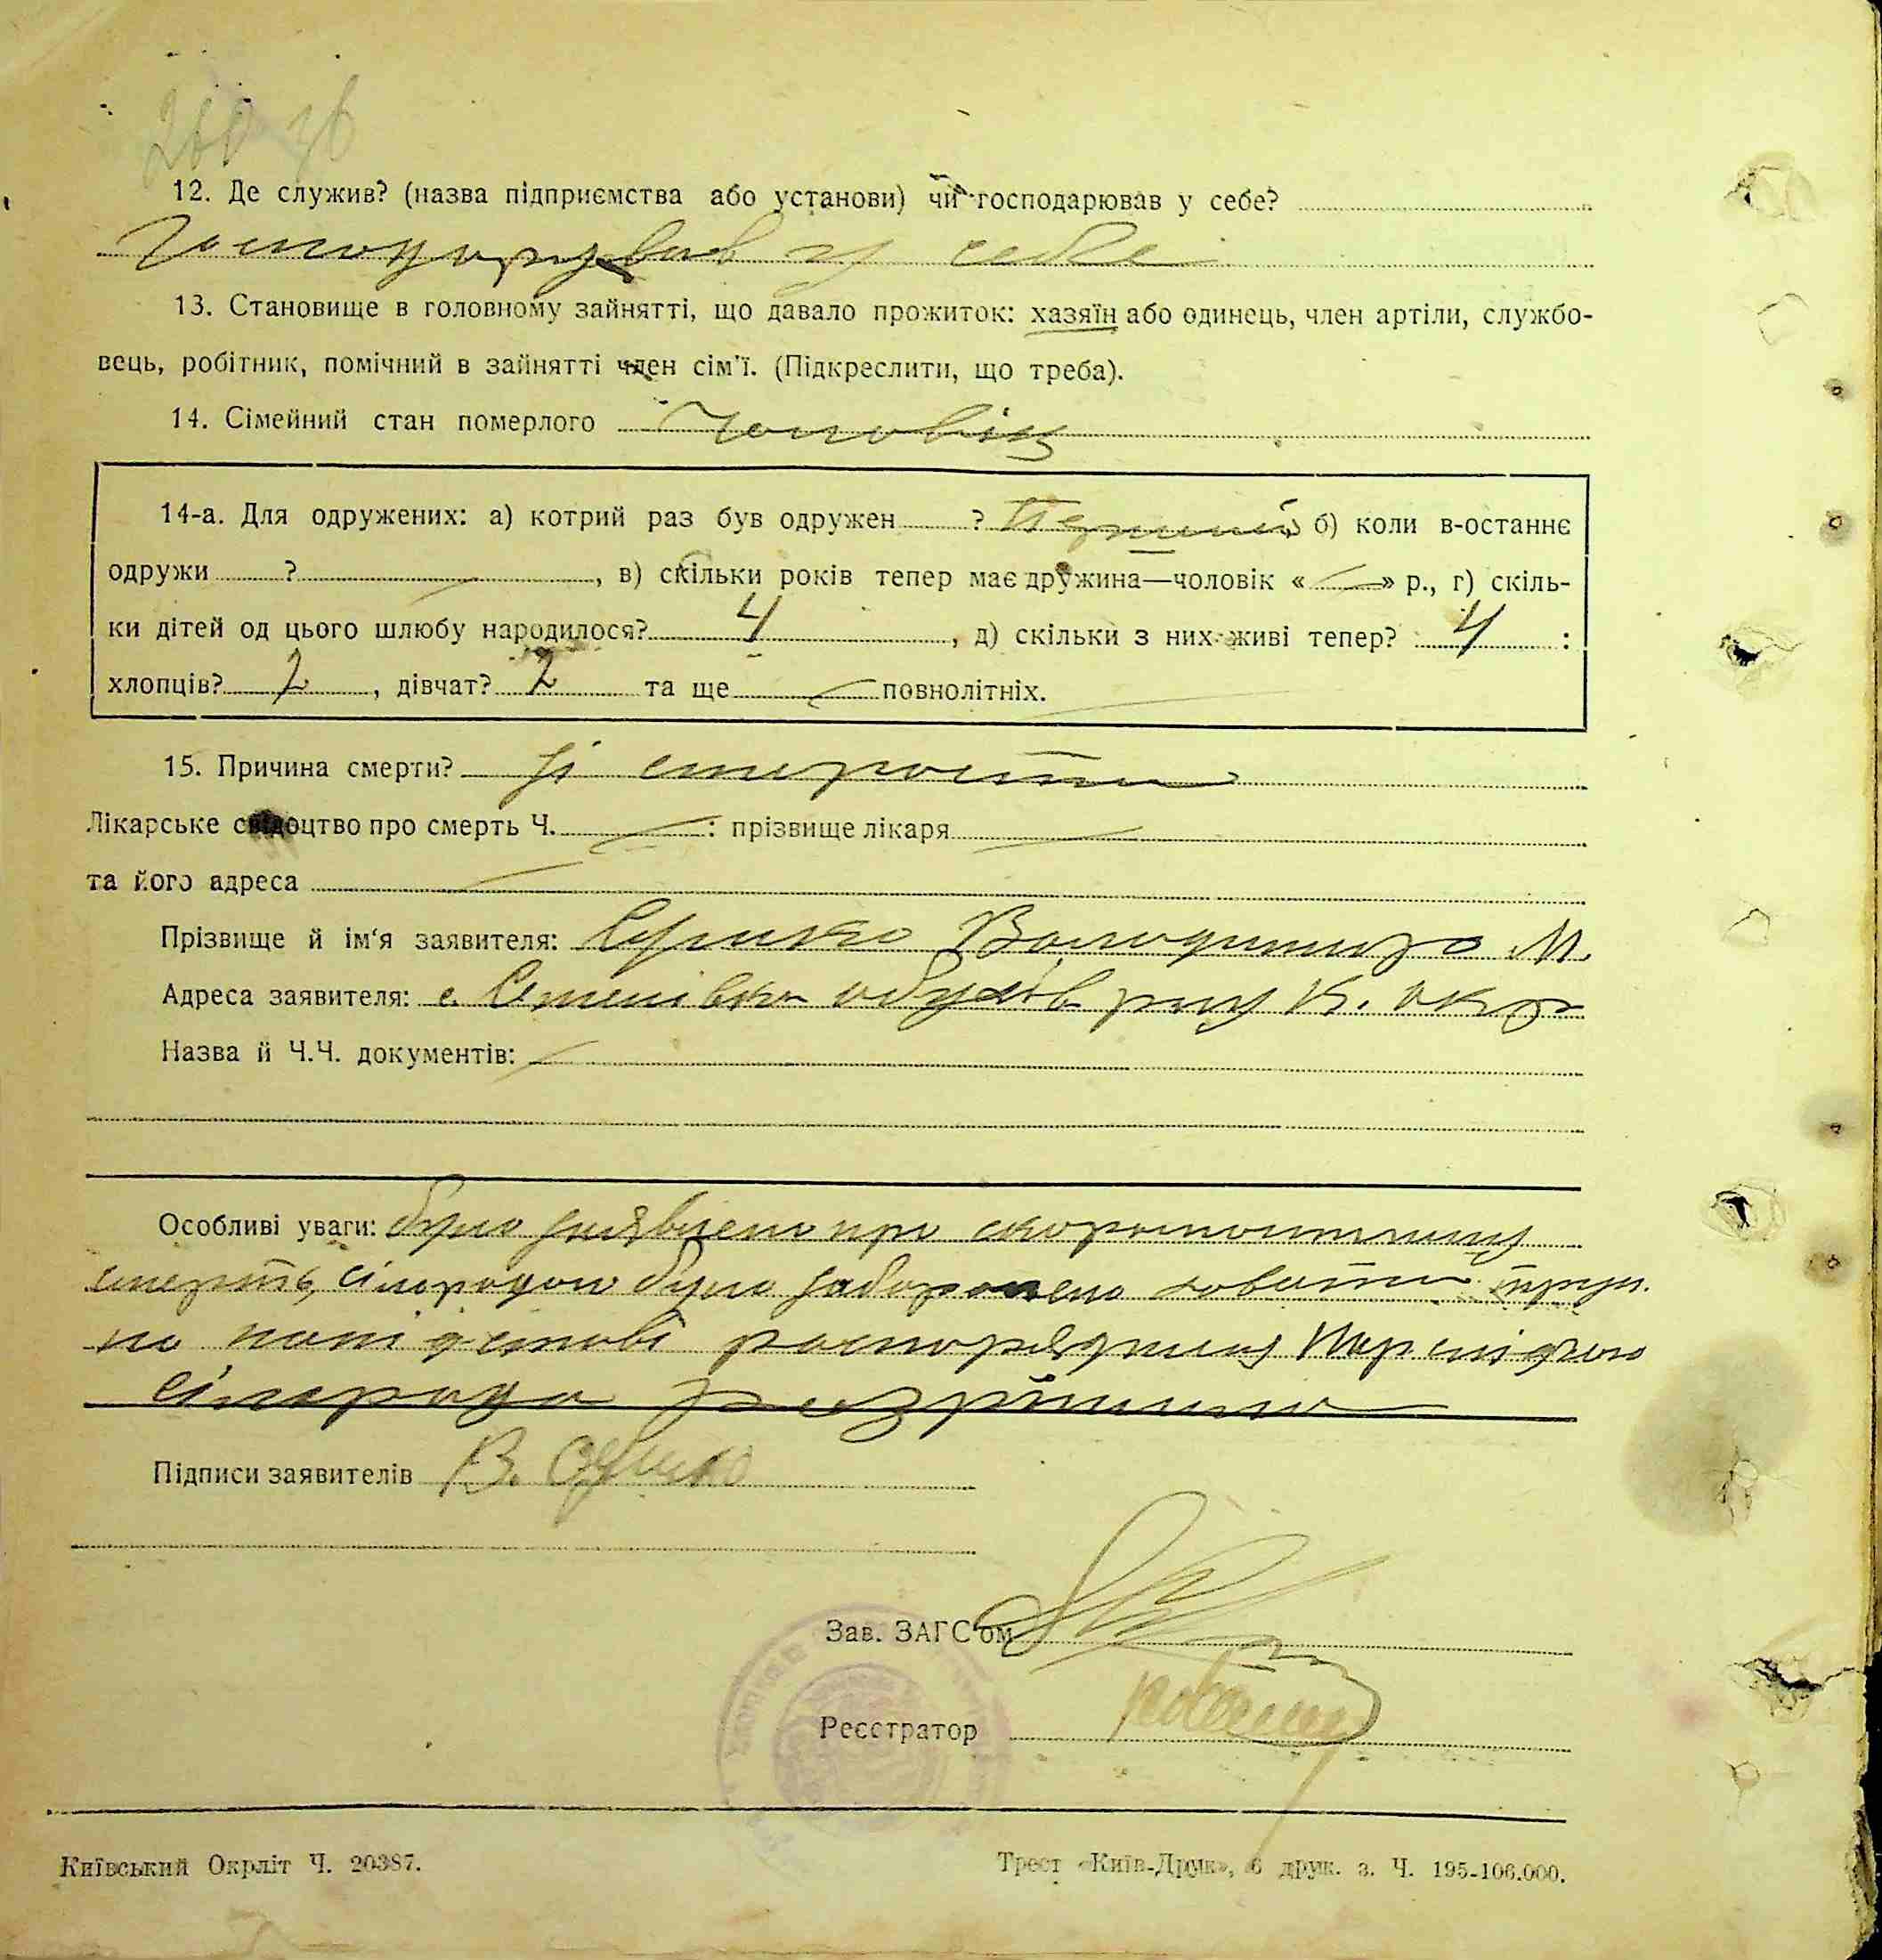 12. Де служив? (назва підприємства або установи) чи господарював у себе?
Господорував у себе
13. Становище в головному зайнятті, що давало прожиток: хазяїн або одинець, член артіли, службо-
вець, робітник, помічний в зайнятті член сім'ї. (Підкреслити, що треба).
14. Сімейний стан померлого Чоловік
14-а. Для одружених: а) котрий раз був одружен ? Перший б) коли в-останнє
одружи ? — , в) скільки років тепер має дружина—чоловік «—» р., г) скіль-
ки дітей од цього шлюбу народилося? 4 , д) скільки з них живі тепер? 4 :
хлопців? 2 , дівчат? 2 та ще — повнолітніх.
15. Причина смерти? Зі старости
Лікарське свідоцтво про смерть Ч. — : прізвище лікаря —
та його адреса —
Прізвище й ім'я заявителя: Володимира М.
Адреса заявителя: с. К. окр
Назва й Ч.Ч. документів: —
Особливі уваги: було заявлено про скоропостижну
смерть, сільрадою було заборонено ховати
но роспорядження
сільрада
Підписи заявителів В.
Зав. ЗАГС'ом
Реєстратор
Київський Окрліт Ч. 20387.
Трест «Київ-Друк», 6 друк. з. Ч. 195-106.000.